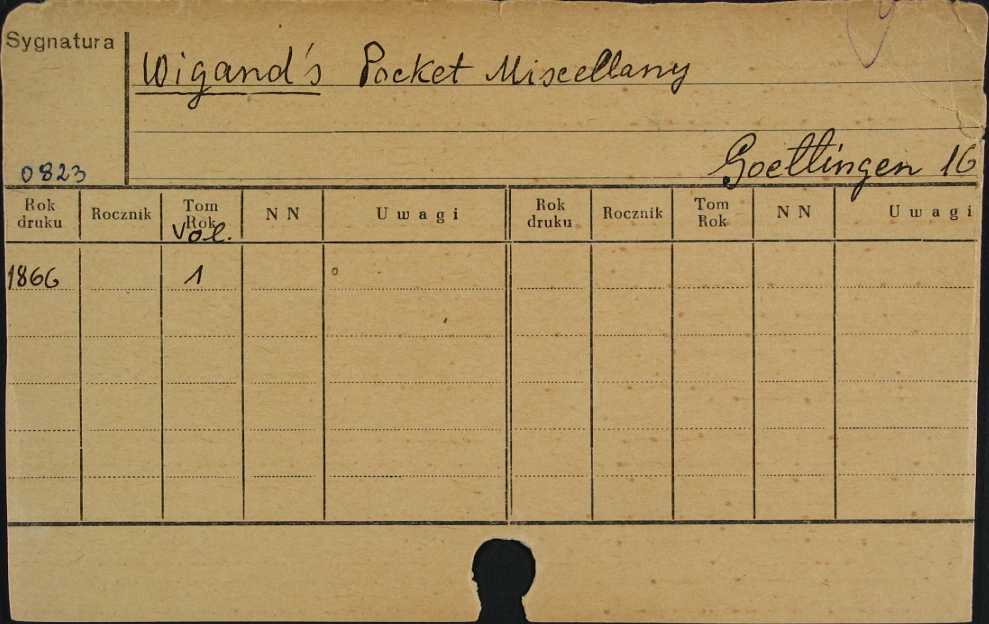 Sygnatura
Wigand's Pocket Miscellany
Goettingen 16
0823
Rok druku Rocznik Tom Rok Vol. NN Uwagi Rok druku Rocznik Tom Rok NN Uwagi
1866 1